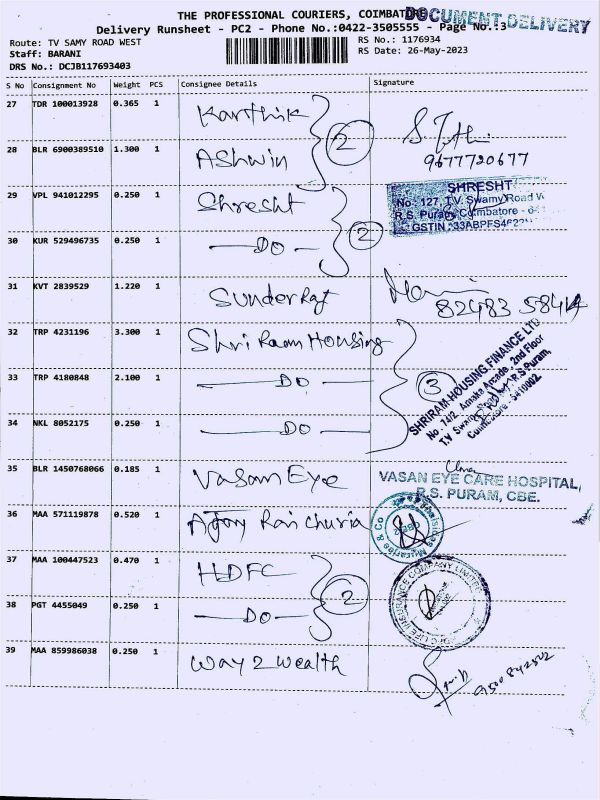 THE PROFESSIONAL COURIERS, COIMBATORE
DOCUMENT DELIVERY
Delivery Runsheet - PC2 - Phone No.:0422-3505555 - Page No.:3
Route: TV SAMY ROAD WEST
RS No.: 1176934
Staff: BARANI
RS Date: 26-May-2023
DRS No.: DCJB117693403
S No Consignment No Weight PCS Consignee Details Signature
27 TDR 100013928 0.365 1 Karthik
28 BLR 6900389510 1.300 1 Ashwin
2
9677720677
29 VPL 941012295 0.250 1 Shresht
30 KUR 529496735 0.250 1 —DO—
2
SHRESHT
No: 127, T.V. Swamy Road
R.S. Puram, Coimbatore -
GSTIN :33ABPFS4623
31 KVT 2839529 1.220 1 Sunderraj
82483 58414
32 TRP 4231196 3.300 1 Shri Raam Housing
33 TRP 4180848 2.100 1 —DO—
34 NKL 8052175 0.250 1 —DO—
3
SHRIRAM HOUSING FINANCE LTD
No: 14/2, Amaka Arcade, 2nd Floor
T.V Swamy Road, R.S.Puram,
Coimbatore - 641002
35 BLR 1450768066 0.185 1 Vasan Eye
VASAN EYE CARE HOSPITAL,
R.S. PURAM, CBE.
36 MAA 571119878 0.520 1 Ajay Raichuria
& Co
37 MAA 100447523 0.470 1 HDFC
38 PGT 4455049 0.250 1 —DO—
2
LIFE INSURANCE COMPANY LIMITED
39 MAA 859986038 0.250 1 Way 2 wealth
9500842502